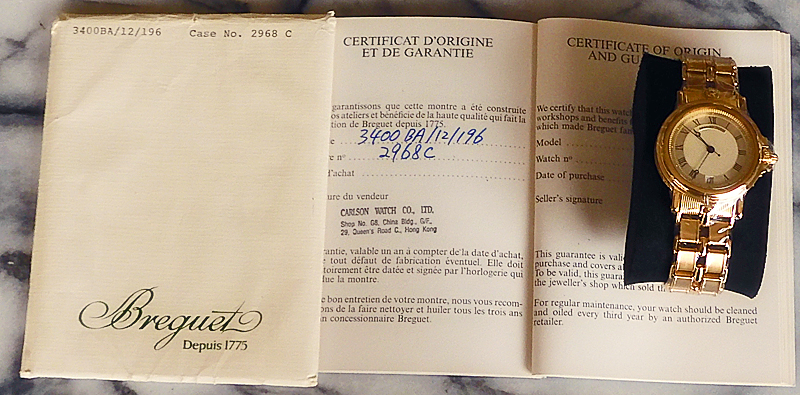 3400BA/12/196 Case No. 2968 C
Breguet
Depuis 1775
CERTIFICAT D'ORIGINE
ET DE GARANTIE
garantissons que cette montre a été construite
ateliers et bénéficie de la haute qualité qui fait la
tion de Breguet depuis 1775.
3400 BA/12/196
nº 2968 C
d'achat
du vendeur
CARLSON WATCH CO., LTD.
Shop No. G8, China Bldg., G/F.,
29, Queen's Road C., Hong Kong
valable un an à compter de la date d'achat,
tout défaut de fabrication éventuel. Elle doit
être datée et signée par l'horlogerie qui
la montre.
bon entretien de votre montre, nous vous recom-
de la faire nettoyer et huiler tous les trois ans
concessionnaire Breguet.
CERTIFICATE OF ORIGIN
AND GU
We certify that this watch
workshops and benefits
which made Breguet
Model
Watch nº
Date of purchase
Seller's signature
This guarantee is vali
purchase and covers
To be valid, this guara
the jeweller's shop which sold th
For regular maintenance, your watch should be cleaned
and oiled every third year by an authorized Breguet
retailer.